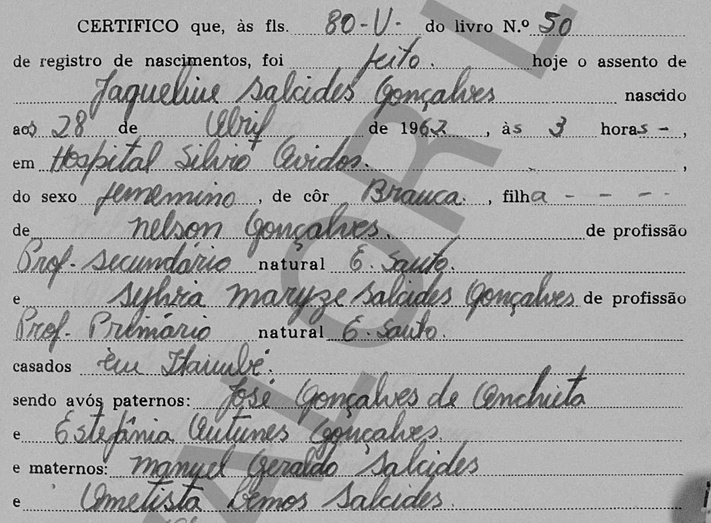 CERTIFICO que, às fls. 80-V- do livro N.º 50
de registro de nascimentos, foi feito. hoje o assento de
Jaqueline Salcides Gonçalves nascido
aos 28 de Abril de 1962, às 3 horas -,
em Hospital Silvio Avidos.,
do sexo femenino, de côr Branca., filha - - - -
de Nelson Gonçalves. de profissão
Prof. Secundário natural E. Santo.
e Sylvia Maryze Salcides Gonçalves de profissão
Prof. Primário natural E. Santo.
casados em Itaimbé.
sendo avós paternos: José Gonçalves de Anchieta
e Estefânia Antunes Gonçalves.
e maternos: Manuel Geraldo Salcides
e Ametista Lemos Salcides.